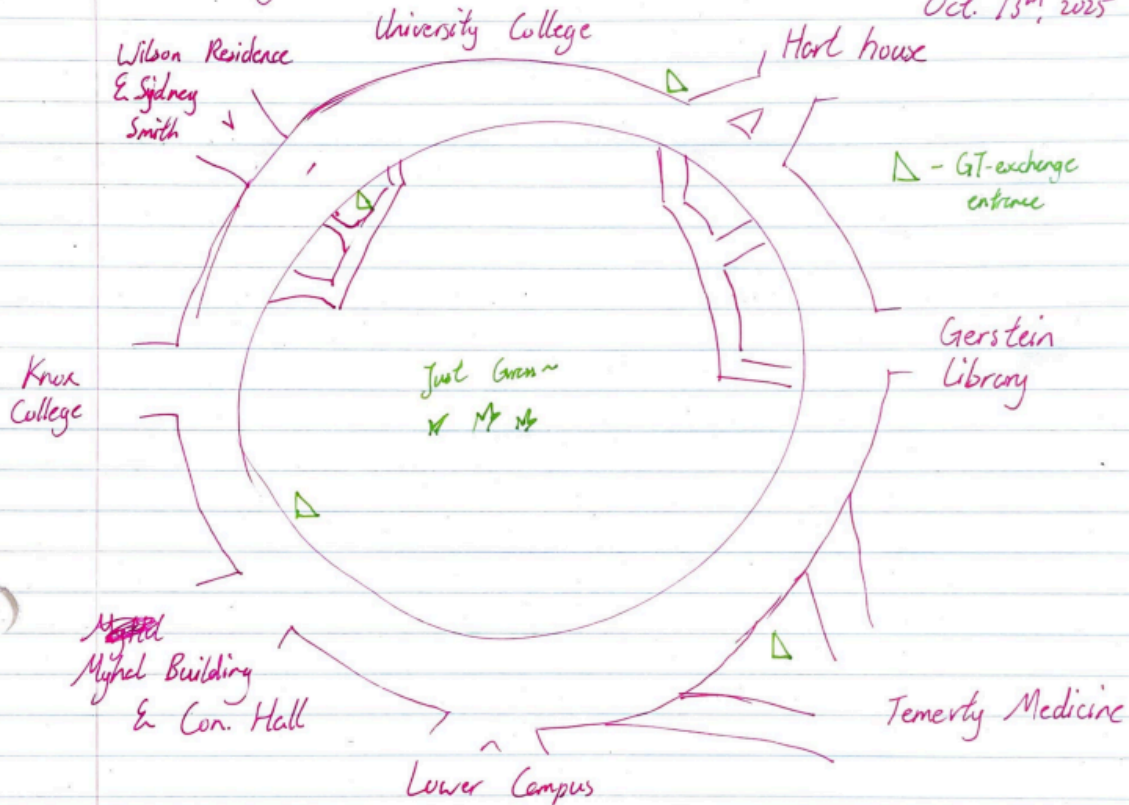 Oct. 13th, 2025
University College
Hart house
Wilson Residence
& Sydney
Smith
- GT-exchange
entrance
Gerstein
Library
Knox
College
Just Grass~
Myhal Building
& Con. Hall
Temerty Medicine
Lower Campus